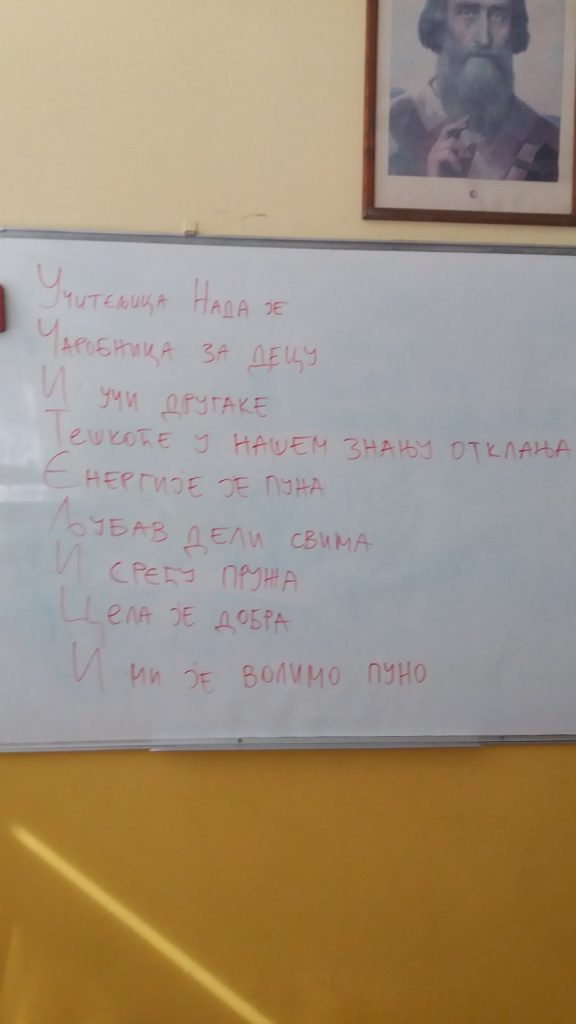 Учитељица Нада је
Чаробница за децу
И учи другаке
Тешкоће у нашем знању отклања
Енергије је пуна
Љубав дели свима
И срећу пружа
Цела је добра
И ми је волимо пуно